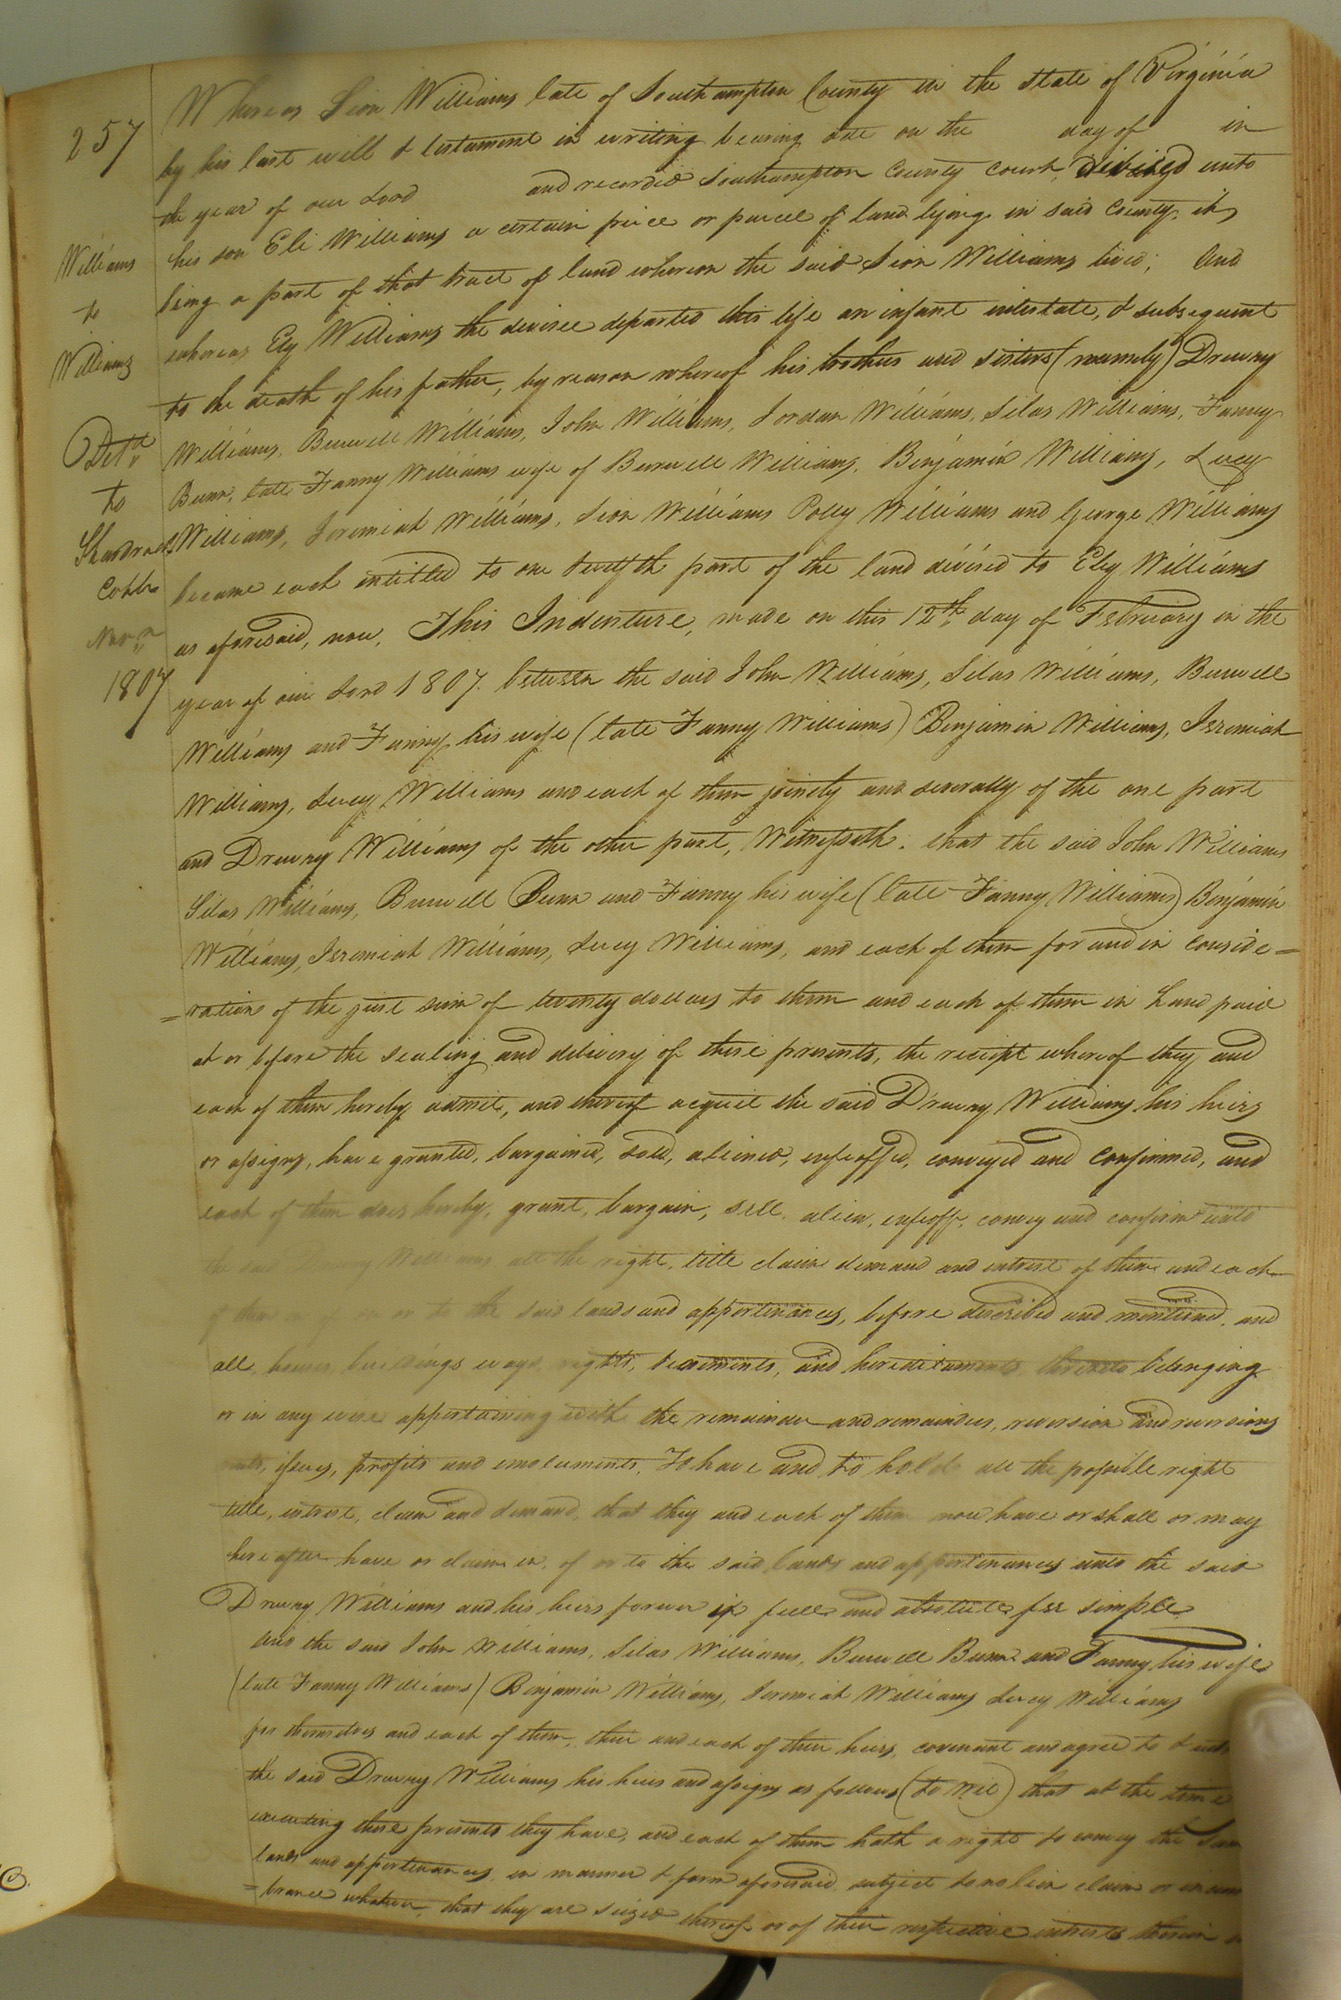 257
Williams
to
Williams
Deld
to
Shardrach
Cobbs
Novr
1807
Whereas Sion Williams late of Southampton County in the State of Virginia
by his last will & testament in writing bearing date on the day of in
the year of our Lord and recorded Southampton County court, devised unto
his son Eli Williams a certain peice or parcel of land lying in said County, it
being a part of that tract of land whereon the said Sion Williams lived; And
whereas Ely Williams the devisee departed this life an infant intestate, & subsequent
to the death of his father, by reason whereof his brothers and sisters (namely) Drewry
Williams, Burwell Williams, John Williams, Jordan Williams, Silas Williams, Fanny
Bunn, late Fanny Williams wife of Burwell Williams, Benjamin Williams, Lucy
Williams, Jeremiah Williams, Sion Williams Polly Williams and George Williams
became each intitled to one twelfth part of the land devised to Ely Williams
as aforesaid, now, This Indenture, made on this 12th day of February in the
year of our Lord 1807. between the said John Williams, Silas Williams, Burwell
Williams and Fanny his wife (late Fanny Williams) Benjamin Williams, Jeremiah
Williams, Lucy Williams and each of them jointly and severally of the one part
and Drewry Williams of the other part, Witnesseth: that the said John Williams
Silas Williams, Burwell Bunn and Fanny his wife (late Fanny Williams) Benjamin
Williams, Jeremiah Williams, Lucy Williams, and each of them for and in conside=
=ration of the just sum of twenty dollars to them and each of them in hand paid
at or before the sealing and delivery of these presents, the receipt whereof they and
each of them hereby admit, and thereof acquit the said Drewry Williams his heirs
or assigns, have granted, bargained, sold, aliened, enfeoffed, conveyed and confirmed, and
each of them does hereby, grant, bargain, sell, alien, enfeoff, convey and confirm unto
the said Williams all the right, title claim demand and intrest of them and each
of them or to the said lands and appertinances, before described and mentioned, and
all, houses, buildings ways, rights, tenements, and hereditaments thereto belonging
or in any wise appertaining with the remainder and remainders, reversion and reversions
issues, profits and emoluments, To have and to hold all the possible right
title, intrest, claim and demand, that they and each of them now have or shall or may
here after have or claim in, of or to the said lands and appertinances unto the said
Drewry Williams and his heirs forever in full and absolute fee simple.
And the said John Williams, Silas Williams, Burwell Bunn and Fanny his wife
(late Fanny Williams) Benjamin Williams, Jeremiah Williams Lucy Williams
for themselves and each of them, their and each of their heirs, covenant and agree to &
the said Drewry Williams his heirs and assigns as follows (to wit) that at the time
executing these presents they have, and each of them hath a right to convey the
lands and appertinances, in manner & form aforesaid, subject to no lien claim or
=brance whatever, that they are seized thereof or of their respective intrests therein